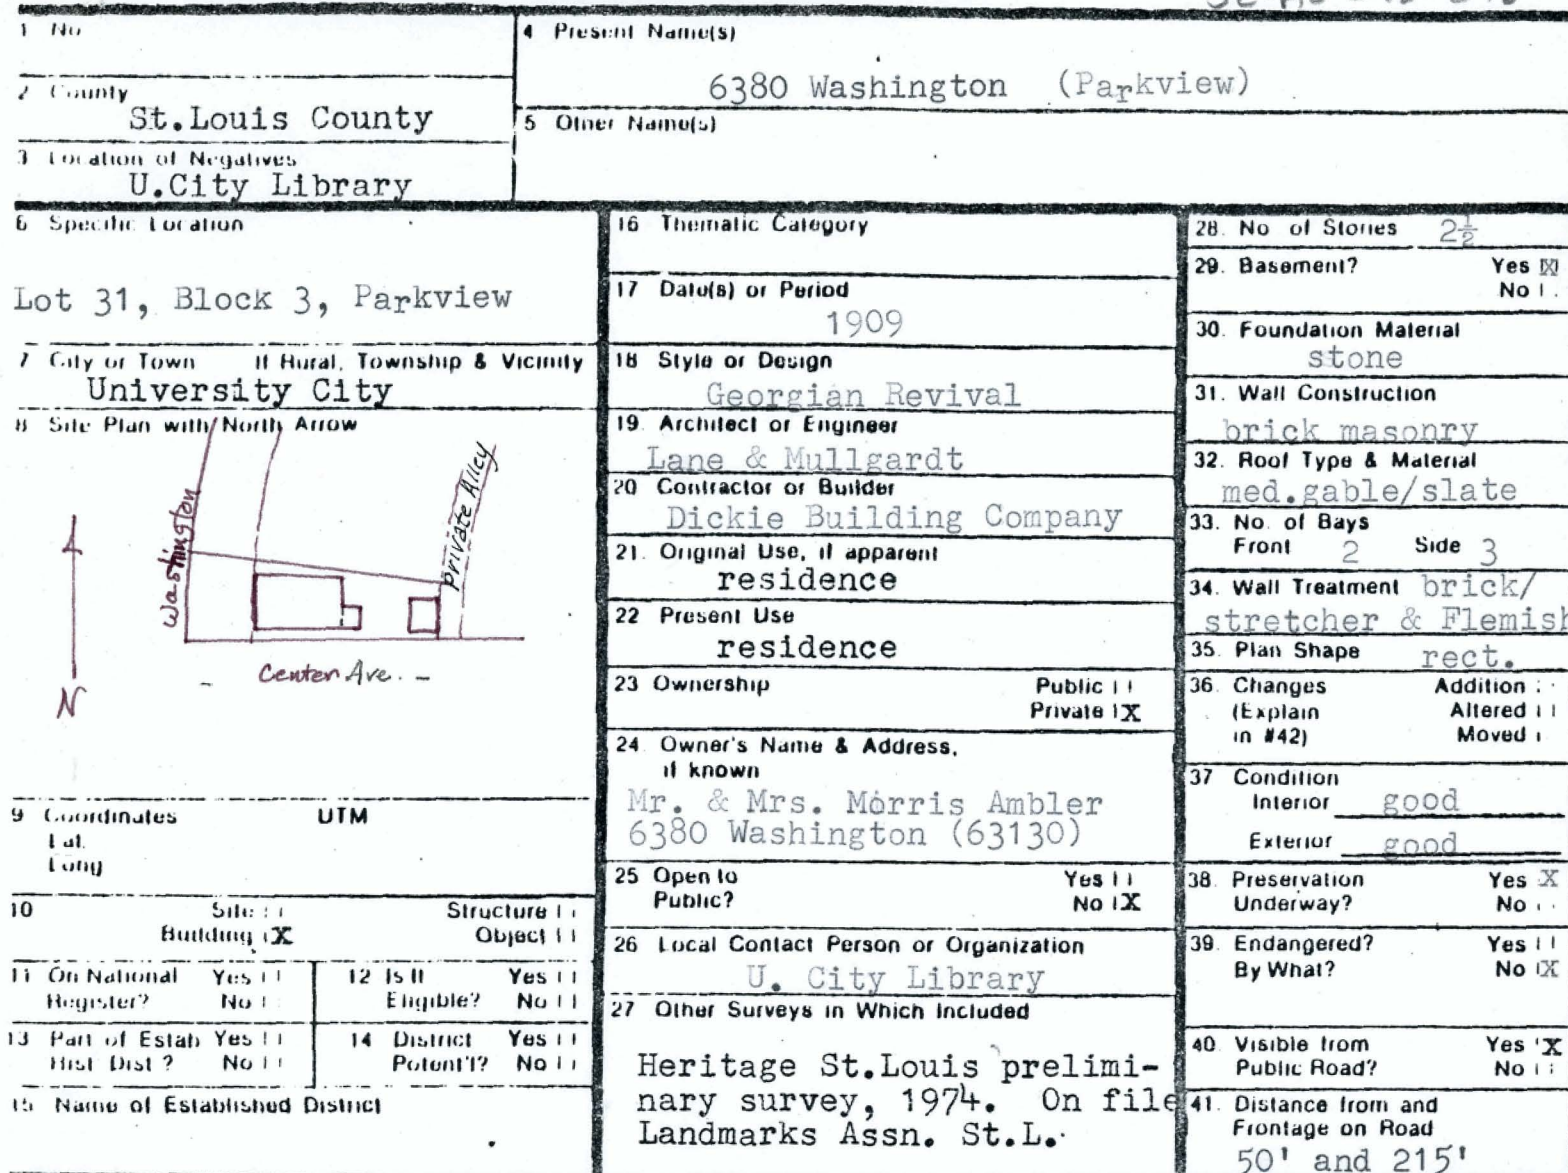 1 No.
4 Present Name(s)
6380 Washington (Parkview)
2 County
St.Louis County
5 Other Name(s)
3 Location of Negatives
U.City Library
6 Specific Location
Lot 31, Block 3, Parkview
7 City or Town If Rural, Township & Vicinity
University City
8 Site Plan with North Arrow
Washington
Private Alley
Center Ave.
N
9 Coordinates UTM
Lat.
Long
10 Site Structure
Building X Object
11 On National Register? Yes No
12 Is It Eligible? Yes No
13 Part of Estab Hist Dist? Yes No
14 District Potent'l? Yes No
15 Name of Established District
16 Thematic Category
17 Date(s) or Period
1909
18 Style or Design
Georgian Revival
19. Architect or Engineer
Lane & Mullgardt
20 Contractor or Builder
Dickie Building Company
21. Original Use, if apparent
residence
22 Present Use
residence
23 Ownership Public
Private X
24 Owner's Name & Address,
if known
Mr. & Mrs. Morris Ambler
6380 Washington (63130)
25 Open to Yes
Public? No X
26 Local Contact Person or Organization
U. City Library
27 Other Surveys in Which Included
Heritage St.Louis prelimi-
nary survey, 1974. On file
Landmarks Assn. St.L.
28. No of Stories 2½
29. Basement? Yes X
No
30. Foundation Material
stone
31. Wall Construction
brick masonry
32. Roof Type & Material
med.gable/slate
33. No. of Bays
Front 2 Side 3
34. Wall Treatment brick/
stretcher & Flemish
35. Plan Shape rect.
36. Changes Addition
(Explain Altered
in #42) Moved
37 Condition
Interior good
Exterior good
38. Preservation Yes X
Underway? No
39. Endangered? Yes
By What? No X
40. Visible from Yes X
Public Road? No
41. Distance from and
Frontage on Road
50' and 215'